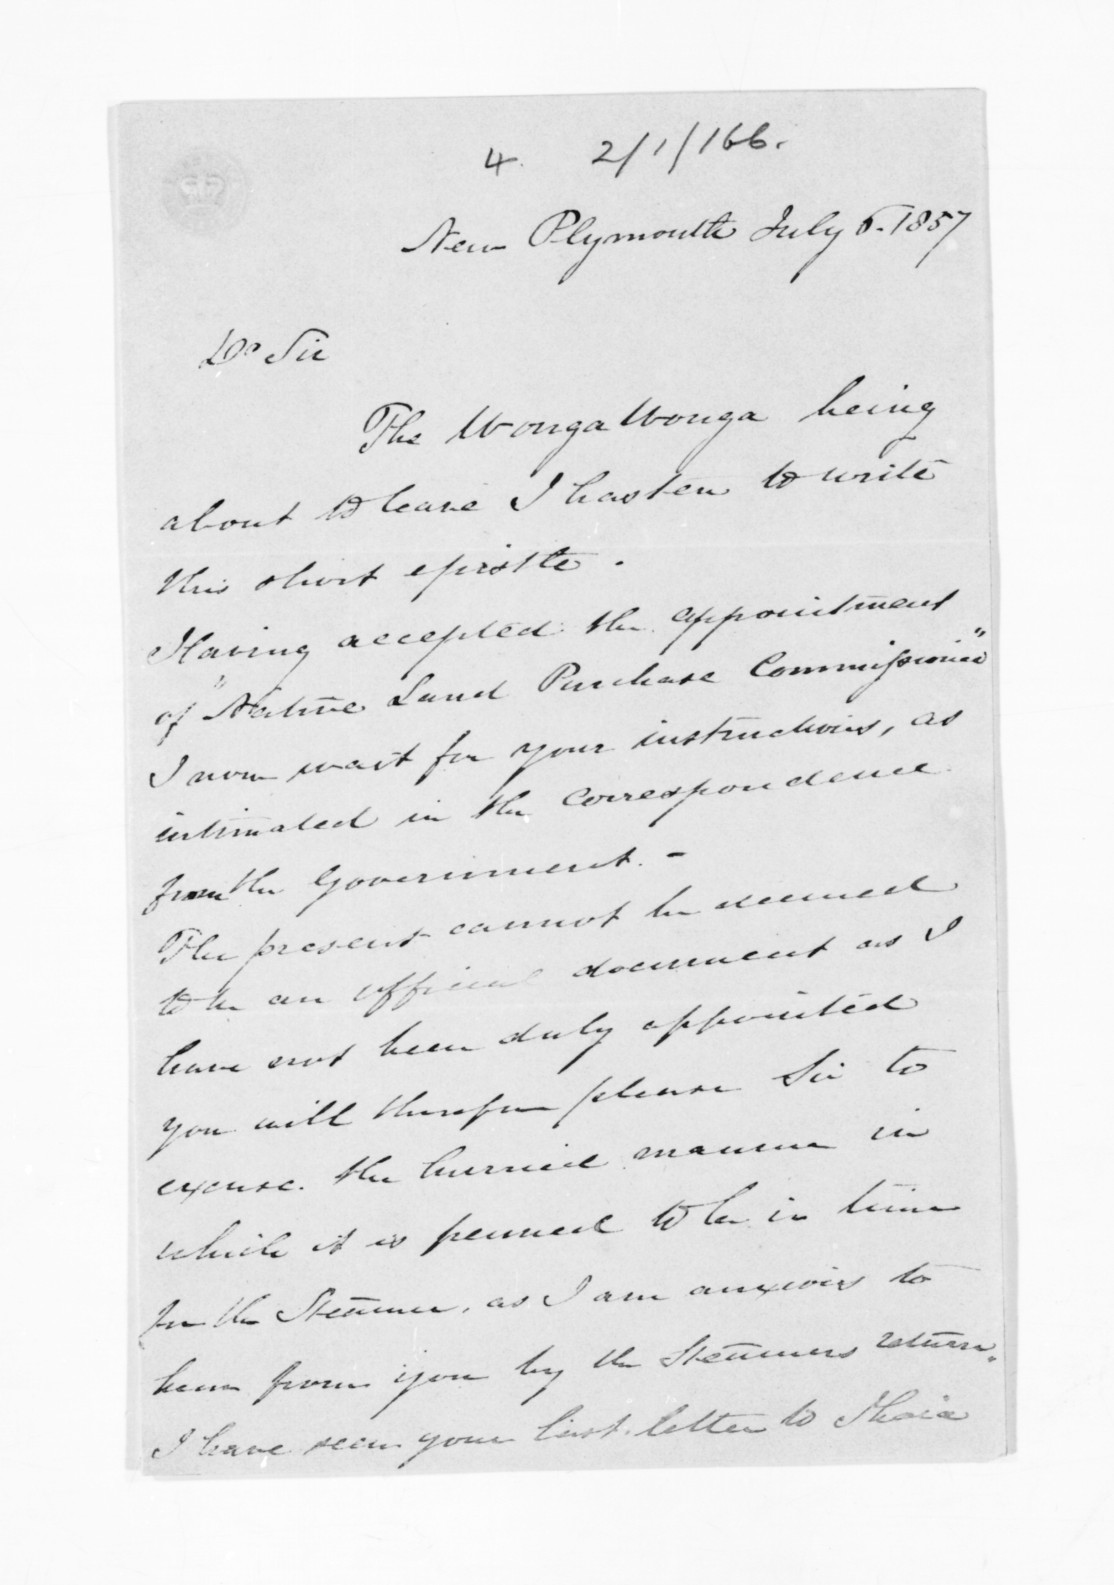 4. 2/1/166.
New Plymouth July 6. 1857
Dr Sir
The Wonga Wonga being
about to leave I hasten to write
this short epistle.
Having accepted the appointment
of "Native Land Purchase Commissioner"
I now wait for your instructions, as
intimated in the correspondence
from the Government. -
The present cannot be deemed
to be an official document as I
have not been duly appointed
you will therefore please Sir to
excuse. the hurried manner in
which it is penned to be in time
for the Steamer, as I am anxious to
hear from you by the Steamers return.
I have seen your last letter to Ihaia